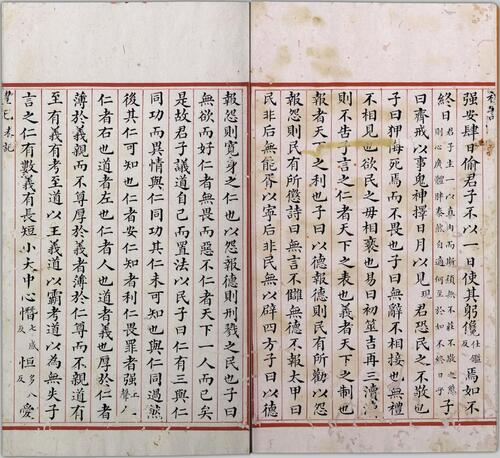 强安肆日偷君子不以一日使其躬儳仕鑑反焉如不
終日君子主一以直內而斯須無不莊不敬之慝則心廣體胖泰然自適何至於如不終日乎子
曰齊戒以事鬼神擇日月以見現君恐民之不敬也
子曰狎侮死焉而不畏也子曰無辭不相接也無禮
不相見也欲民之毋相褻也易曰初筮吉再三瀆瀆
則不告子言之仁者天下之表也義者天下之制也
報者天下之利也子曰以德報德則民有所勸以怨
報怨則民有所懲詩曰無言不讎無德不報太甲曰
民非后無能胥以寧后非民無以辟四方子曰以德
報怨則寬身之仁也以怨報德則刑戮之民也子曰
無欲而好仁者無畏而惡不仁者天下一人而已矣
是故君子議道自己而置法以民子曰仁有三與仁
同功而異情與仁同功其仁未可知也與仁同過然
後其仁可知也仁者安仁知者利仁畏罪者强上聲仁
仁者右也道者左也仁者人也道者義也厚於仁者
薄於義親而不尊厚於義者薄於仁尊而不親道有
至有義有考至道以王義道以霸考道以為無失子
言之仁有數義有長短小大中心憯七感反怛多八反愛